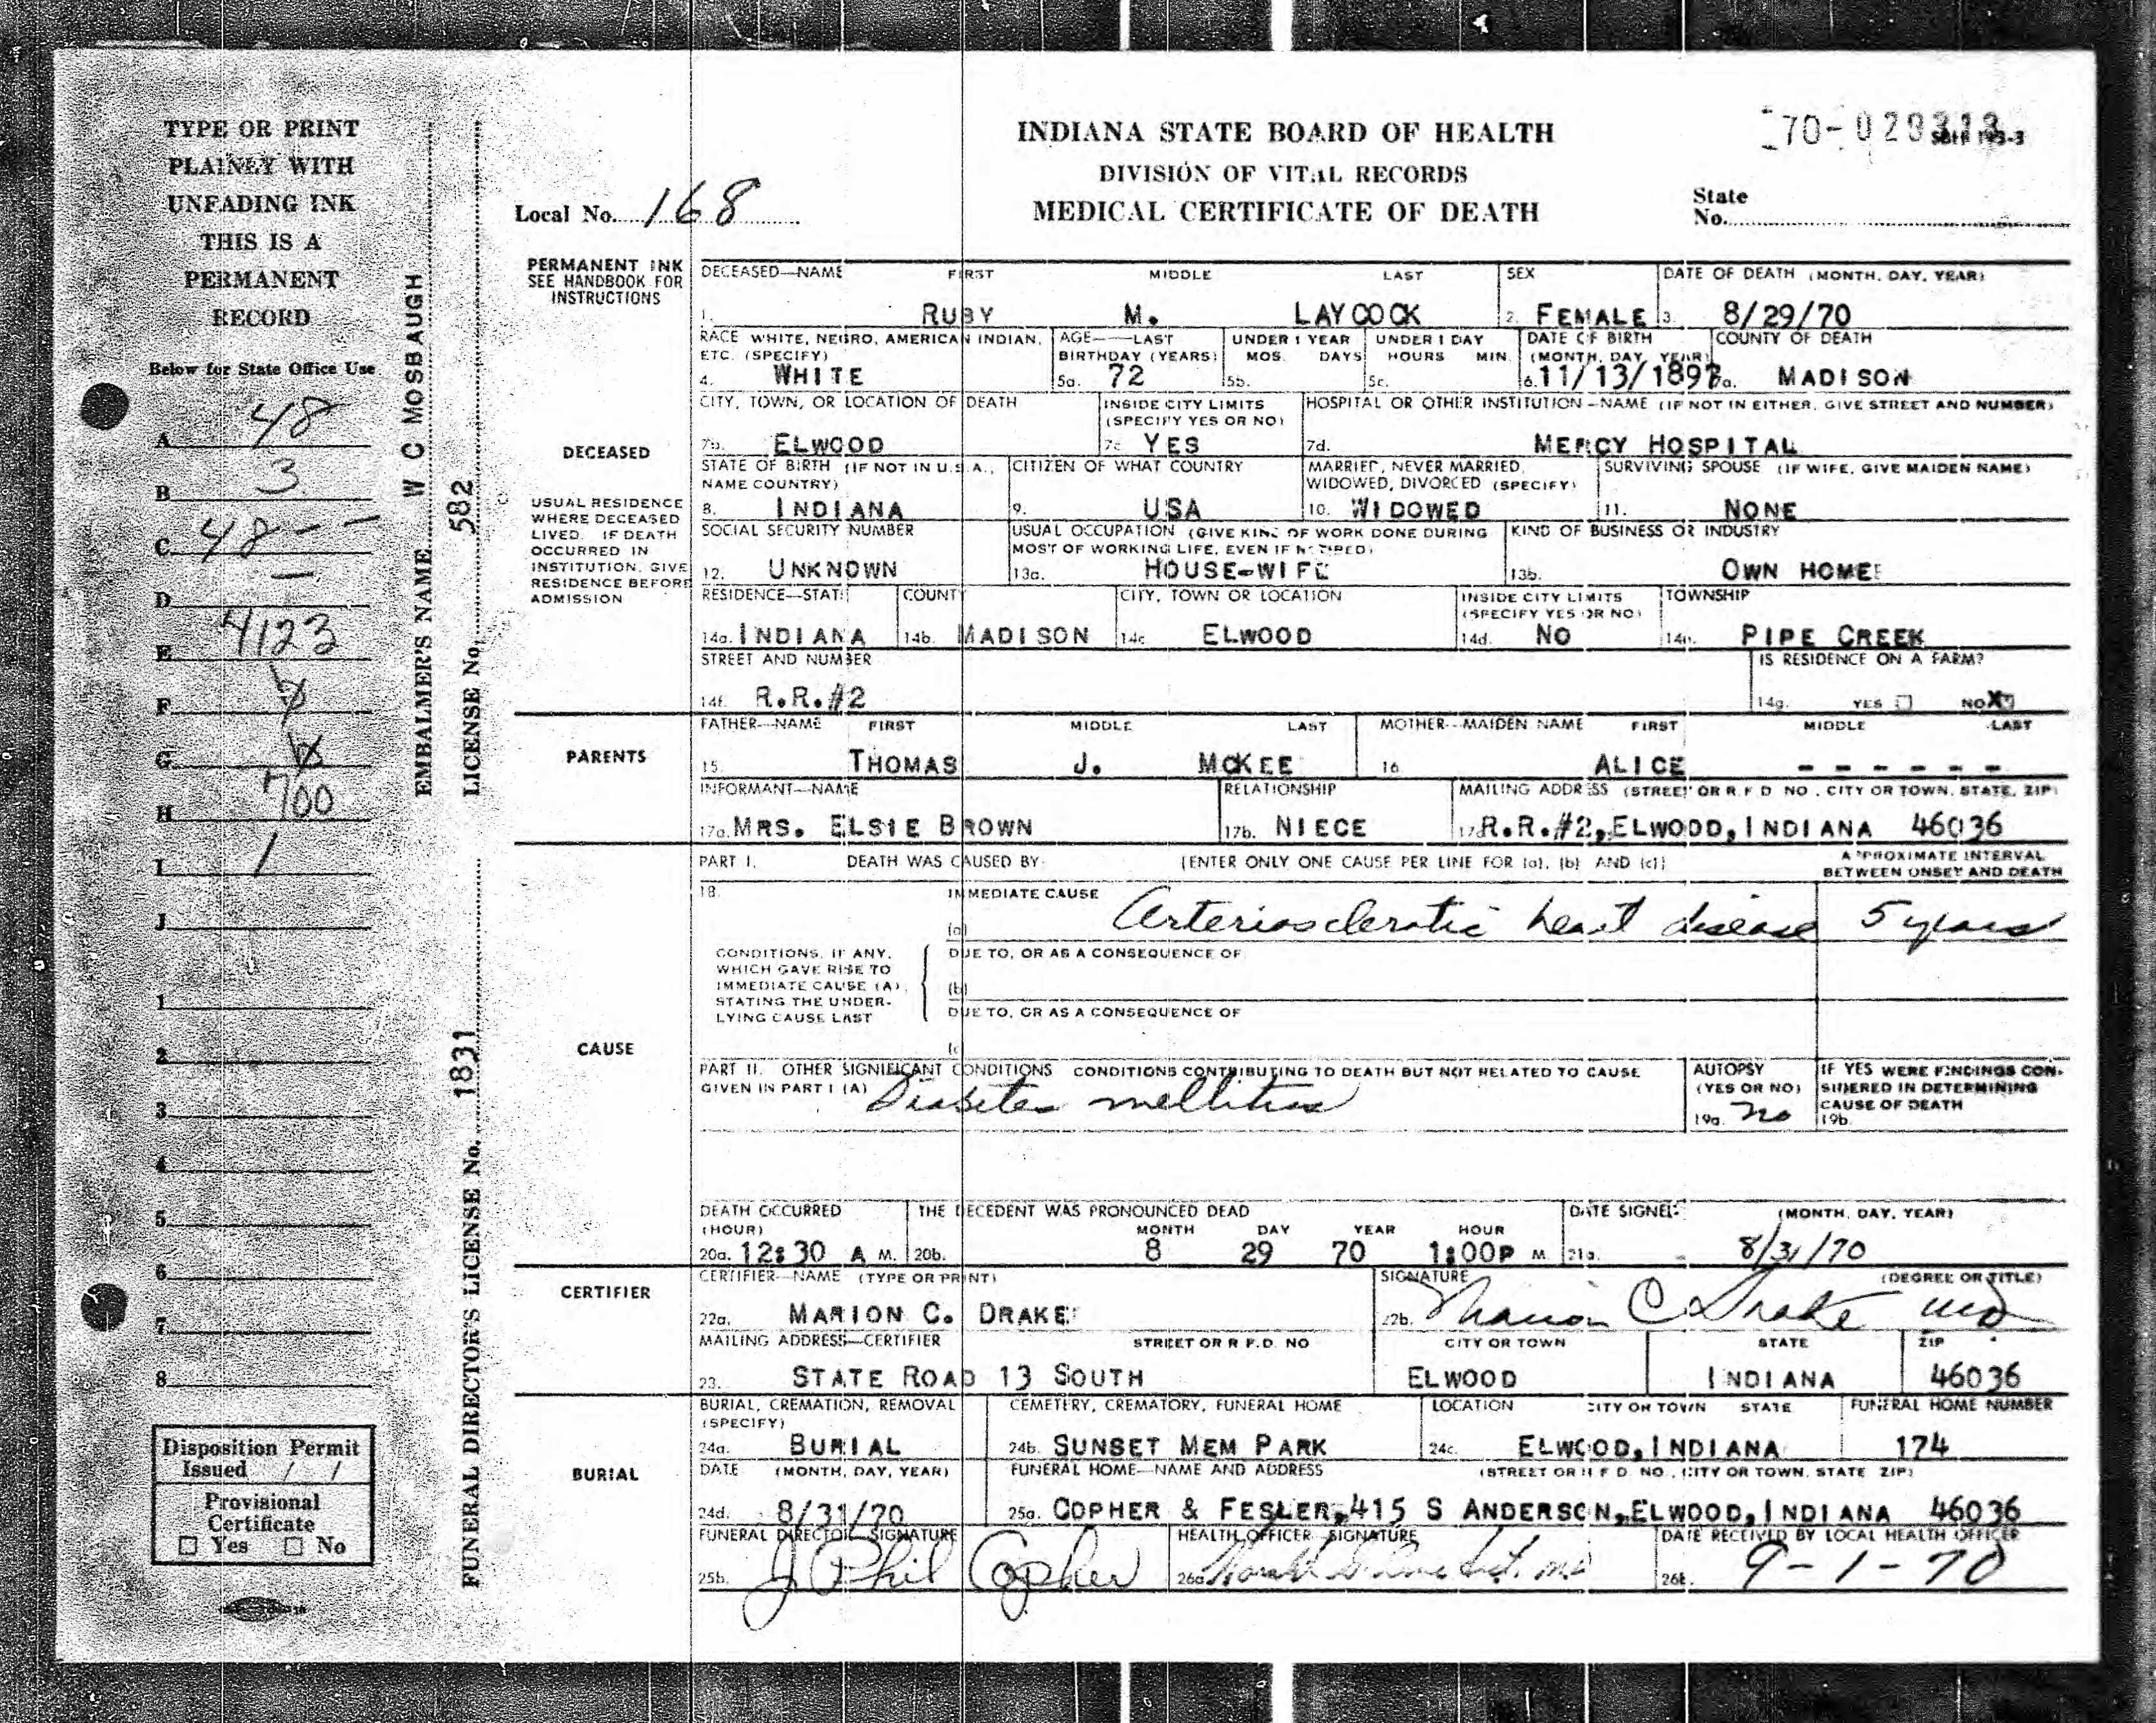 TYPE OR PRINT
PLAINLY WITH
UNFADING INK
THIS IS A
PERMANENT
RECORD
Below for State Office Use
A 48
B 3
C 48 - -
D —
E 4123
F
G
H 700
I 1
J
1
2
3
4
5
6
7
8
Disposition Permit
Issued / /
Provisional
Certificate
☐ Yes ☐ No
EMBALMER'S NAME W C MOSBAUGH
LICENSE No. 582
FUNERAL DIRECTOR'S LICENSE No. 1831
INDIANA STATE BOARD OF HEALTH
DIVISION OF VITAL RECORDS
MEDICAL CERTIFICATE OF DEATH
70-
Local No. 168
State
No.
PERMANENT INK
SEE HANDBOOK FOR
INSTRUCTIONS
DECEASED—NAME FIRST MIDDLE LAST SEX DATE OF DEATH (MONTH, DAY, YEAR)
1. RUBY M. LAYCOCK 2. FEMALE 3. 8/29/70
RACE WHITE, NEGRO, AMERICAN INDIAN, AGE—LAST UNDER 1 YEAR UNDER 1 DAY DATE OF BIRTH COUNTY OF DEATH
ETC. (SPECIFY) BIRTHDAY (YEARS) MOS. DAYS HOURS MIN. (MONTH, DAY, YEAR)
4. WHITE 5a. 72 5b. 5c. 6. 11/13/1897 7a. MADISON
CITY, TOWN, OR LOCATION OF DEATH INSIDE CITY LIMITS HOSPITAL OR OTHER INSTITUTION—NAME (IF NOT IN EITHER, GIVE STREET AND NUMBER)
(SPECIFY YES OR NO)
DECEASED
7b. ELWOOD 7c. YES 7d. MERCY HOSPITAL
STATE OF BIRTH (IF NOT IN U.S.A., CITIZEN OF WHAT COUNTRY MARRIED, NEVER MARRIED, SURVIVING SPOUSE (IF WIFE, GIVE MAIDEN NAME)
NAME COUNTRY) WIDOWED, DIVORCED (SPECIFY)
8. INDIANA 9. USA 10. WIDOWED 11. NONE
USUAL RESIDENCE
WHERE DECEASED
LIVED. IF DEATH
OCCURRED IN
INSTITUTION, GIVE
RESIDENCE BEFORE
ADMISSION
SOCIAL SECURITY NUMBER USUAL OCCUPATION (GIVE KIND OF WORK DONE DURING KIND OF BUSINESS OR INDUSTRY
MOST OF WORKING LIFE, EVEN IF RETIRED)
12. UNKNOWN 13a. HOUSE-WIFE 13b. OWN HOME
RESIDENCE—STATE COUNTY CITY, TOWN OR LOCATION INSIDE CITY LIMITS TOWNSHIP
(SPECIFY YES OR NO)
14a. INDIANA 14b. MADISON 14c. ELWOOD 14d. NO 14e. PIPE CREEK
STREET AND NUMBER IS RESIDENCE ON A FARM?
14f. R.R.#2 14g. YES ☐ NO X
PARENTS
FATHER—NAME FIRST MIDDLE LAST MOTHER—MAIDEN NAME FIRST MIDDLE LAST
15. THOMAS J. MCKEE 16. ALICE - - - - - -
INFORMANT—NAME RELATIONSHIP MAILING ADDRESS (STREET OR R.F.D. NO., CITY OR TOWN, STATE, ZIP)
17a. MRS. ELSIE BROWN 17b. NIECE 17c. R.R.#2, ELWOOD, INDIANA 46036
CAUSE
PART I. DEATH WAS CAUSED BY: [ENTER ONLY ONE CAUSE PER LINE FOR (a), (b) AND (c)] APPROXIMATE INTERVAL
BETWEEN ONSET AND DEATH
18. IMMEDIATE CAUSE
(a) Arteriosclerotic heart disease 5 years
CONDITIONS, IF ANY,
WHICH GAVE RISE TO
IMMEDIATE CAUSE (A),
STATING THE UNDER-
LYING CAUSE LAST
DUE TO, OR AS A CONSEQUENCE OF
(b)
DUE TO, OR AS A CONSEQUENCE OF
(c)
PART II. OTHER SIGNIFICANT CONDITIONS CONDITIONS CONTRIBUTING TO DEATH BUT NOT RELATED TO CAUSE
GIVEN IN PART I (A) Diabetes mellitus
AUTOPSY
(YES OR NO)
19a. no
IF YES WERE FINDINGS CON-
SIDERED IN DETERMINING
CAUSE OF DEATH
19b.
DEATH OCCURRED THE DECEDENT WAS PRONOUNCED DEAD DATE SIGNED (MONTH, DAY, YEAR)
(HOUR) MONTH DAY YEAR HOUR
20a. 12:30 A M. 20b. 8 29 70 1:00P M. 21a. 8/31/70
CERTIFIER
CERTIFIER—NAME (TYPE OR PRINT) SIGNATURE (DEGREE OR TITLE)
22a. MARION C. DRAKE 22b. Marion C Drake MD
MAILING ADDRESS—CERTIFIER STREET OR R.F.D. NO CITY OR TOWN STATE ZIP
23. STATE ROAD 13 SOUTH ELWOOD INDIANA 46036
BURIAL
BURIAL, CREMATION, REMOVAL CEMETERY, CREMATORY, FUNERAL HOME LOCATION CITY OR TOWN STATE FUNERAL HOME NUMBER
(SPECIFY)
24a. BURIAL 24b. SUNSET MEM PARK 24c. ELWOOD, INDIANA 174
DATE (MONTH, DAY, YEAR) FUNERAL HOME—NAME AND ADDRESS (STREET OR R.F.D. NO., CITY OR TOWN, STATE ZIP)
24d. 8/31/70 25a. COPHER & FESLER, 415 S ANDERSON, ELWOOD, INDIANA 46036
FUNERAL DIRECTOR SIGNATURE HEALTH OFFICER SIGNATURE DATE RECEIVED BY LOCAL HEALTH OFFICER
25b. J Phil Copher 26a. 26b. 9-1-70